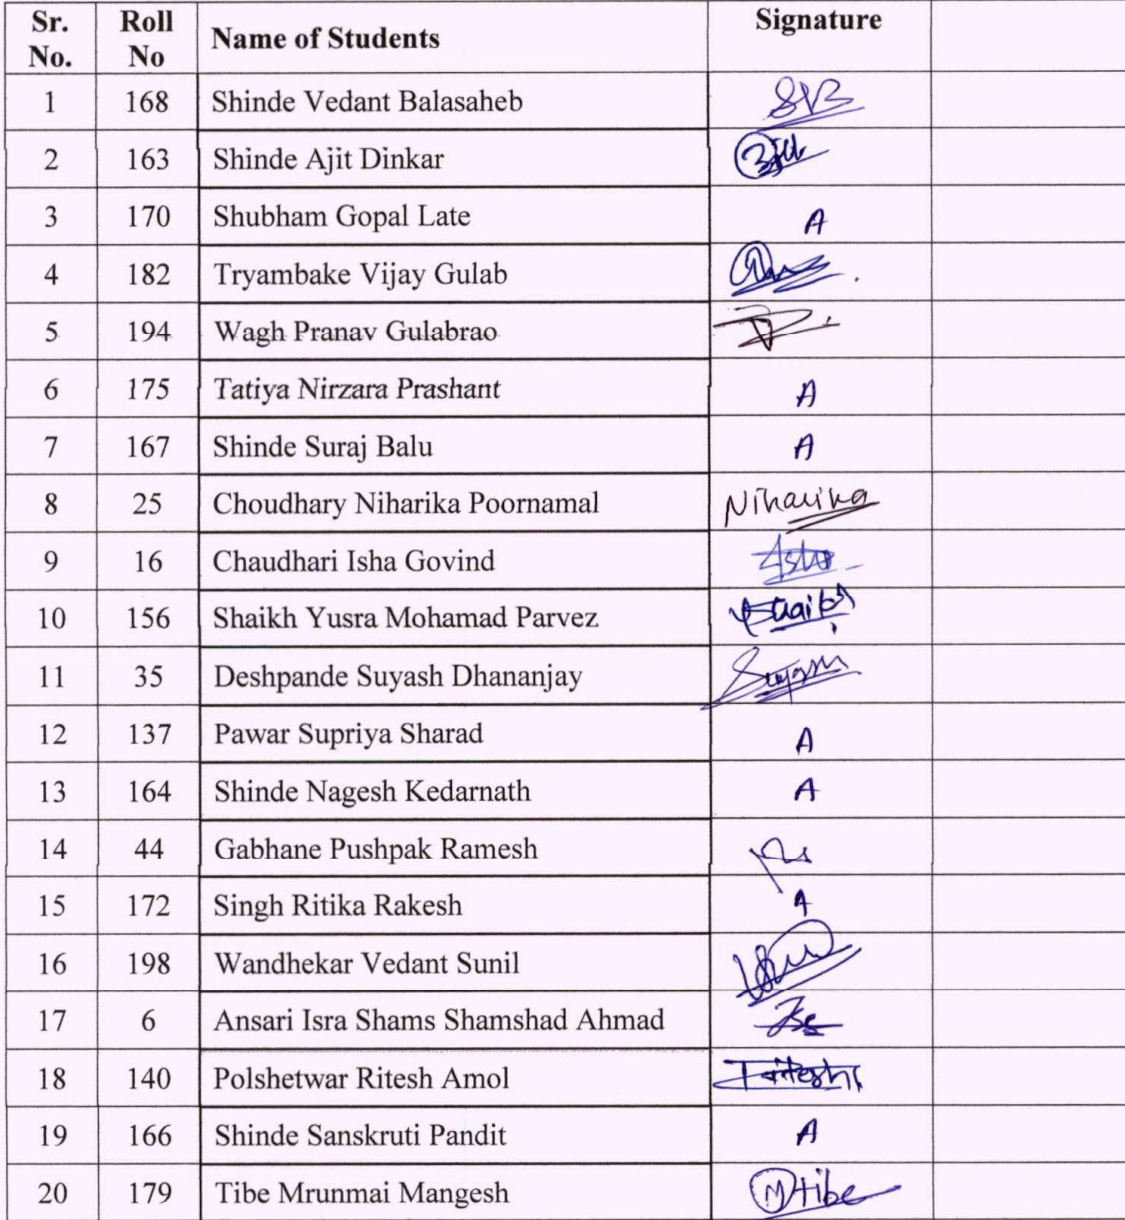 Sr. No. Roll No Name of Students Signature
1 168 Shinde Vedant Balasaheb SVB
2 163 Shinde Ajit Dinkar
3 170 Shubham Gopal Late A
4 182 Tryambake Vijay Gulab
5 194 Wagh Pranav Gulabrao
6 175 Tatiya Nirzara Prashant A
7 167 Shinde Suraj Balu A
8 25 Choudhary Niharika Poornamal Niharika
9 16 Chaudhari Isha Govind
10 156 Shaikh Yusra Mohamad Parvez
11 35 Deshpande Suyash Dhananjay
12 137 Pawar Supriya Sharad A
13 164 Shinde Nagesh Kedarnath A
14 44 Gabhane Pushpak Ramesh
15 172 Singh Ritika Rakesh A
16 198 Wandhekar Vedant Sunil
17 6 Ansari Isra Shams Shamshad Ahmad
18 140 Polshetwar Ritesh Amol
19 166 Shinde Sanskruti Pandit A
20 179 Tibe Mrunmai Mangesh MTibe